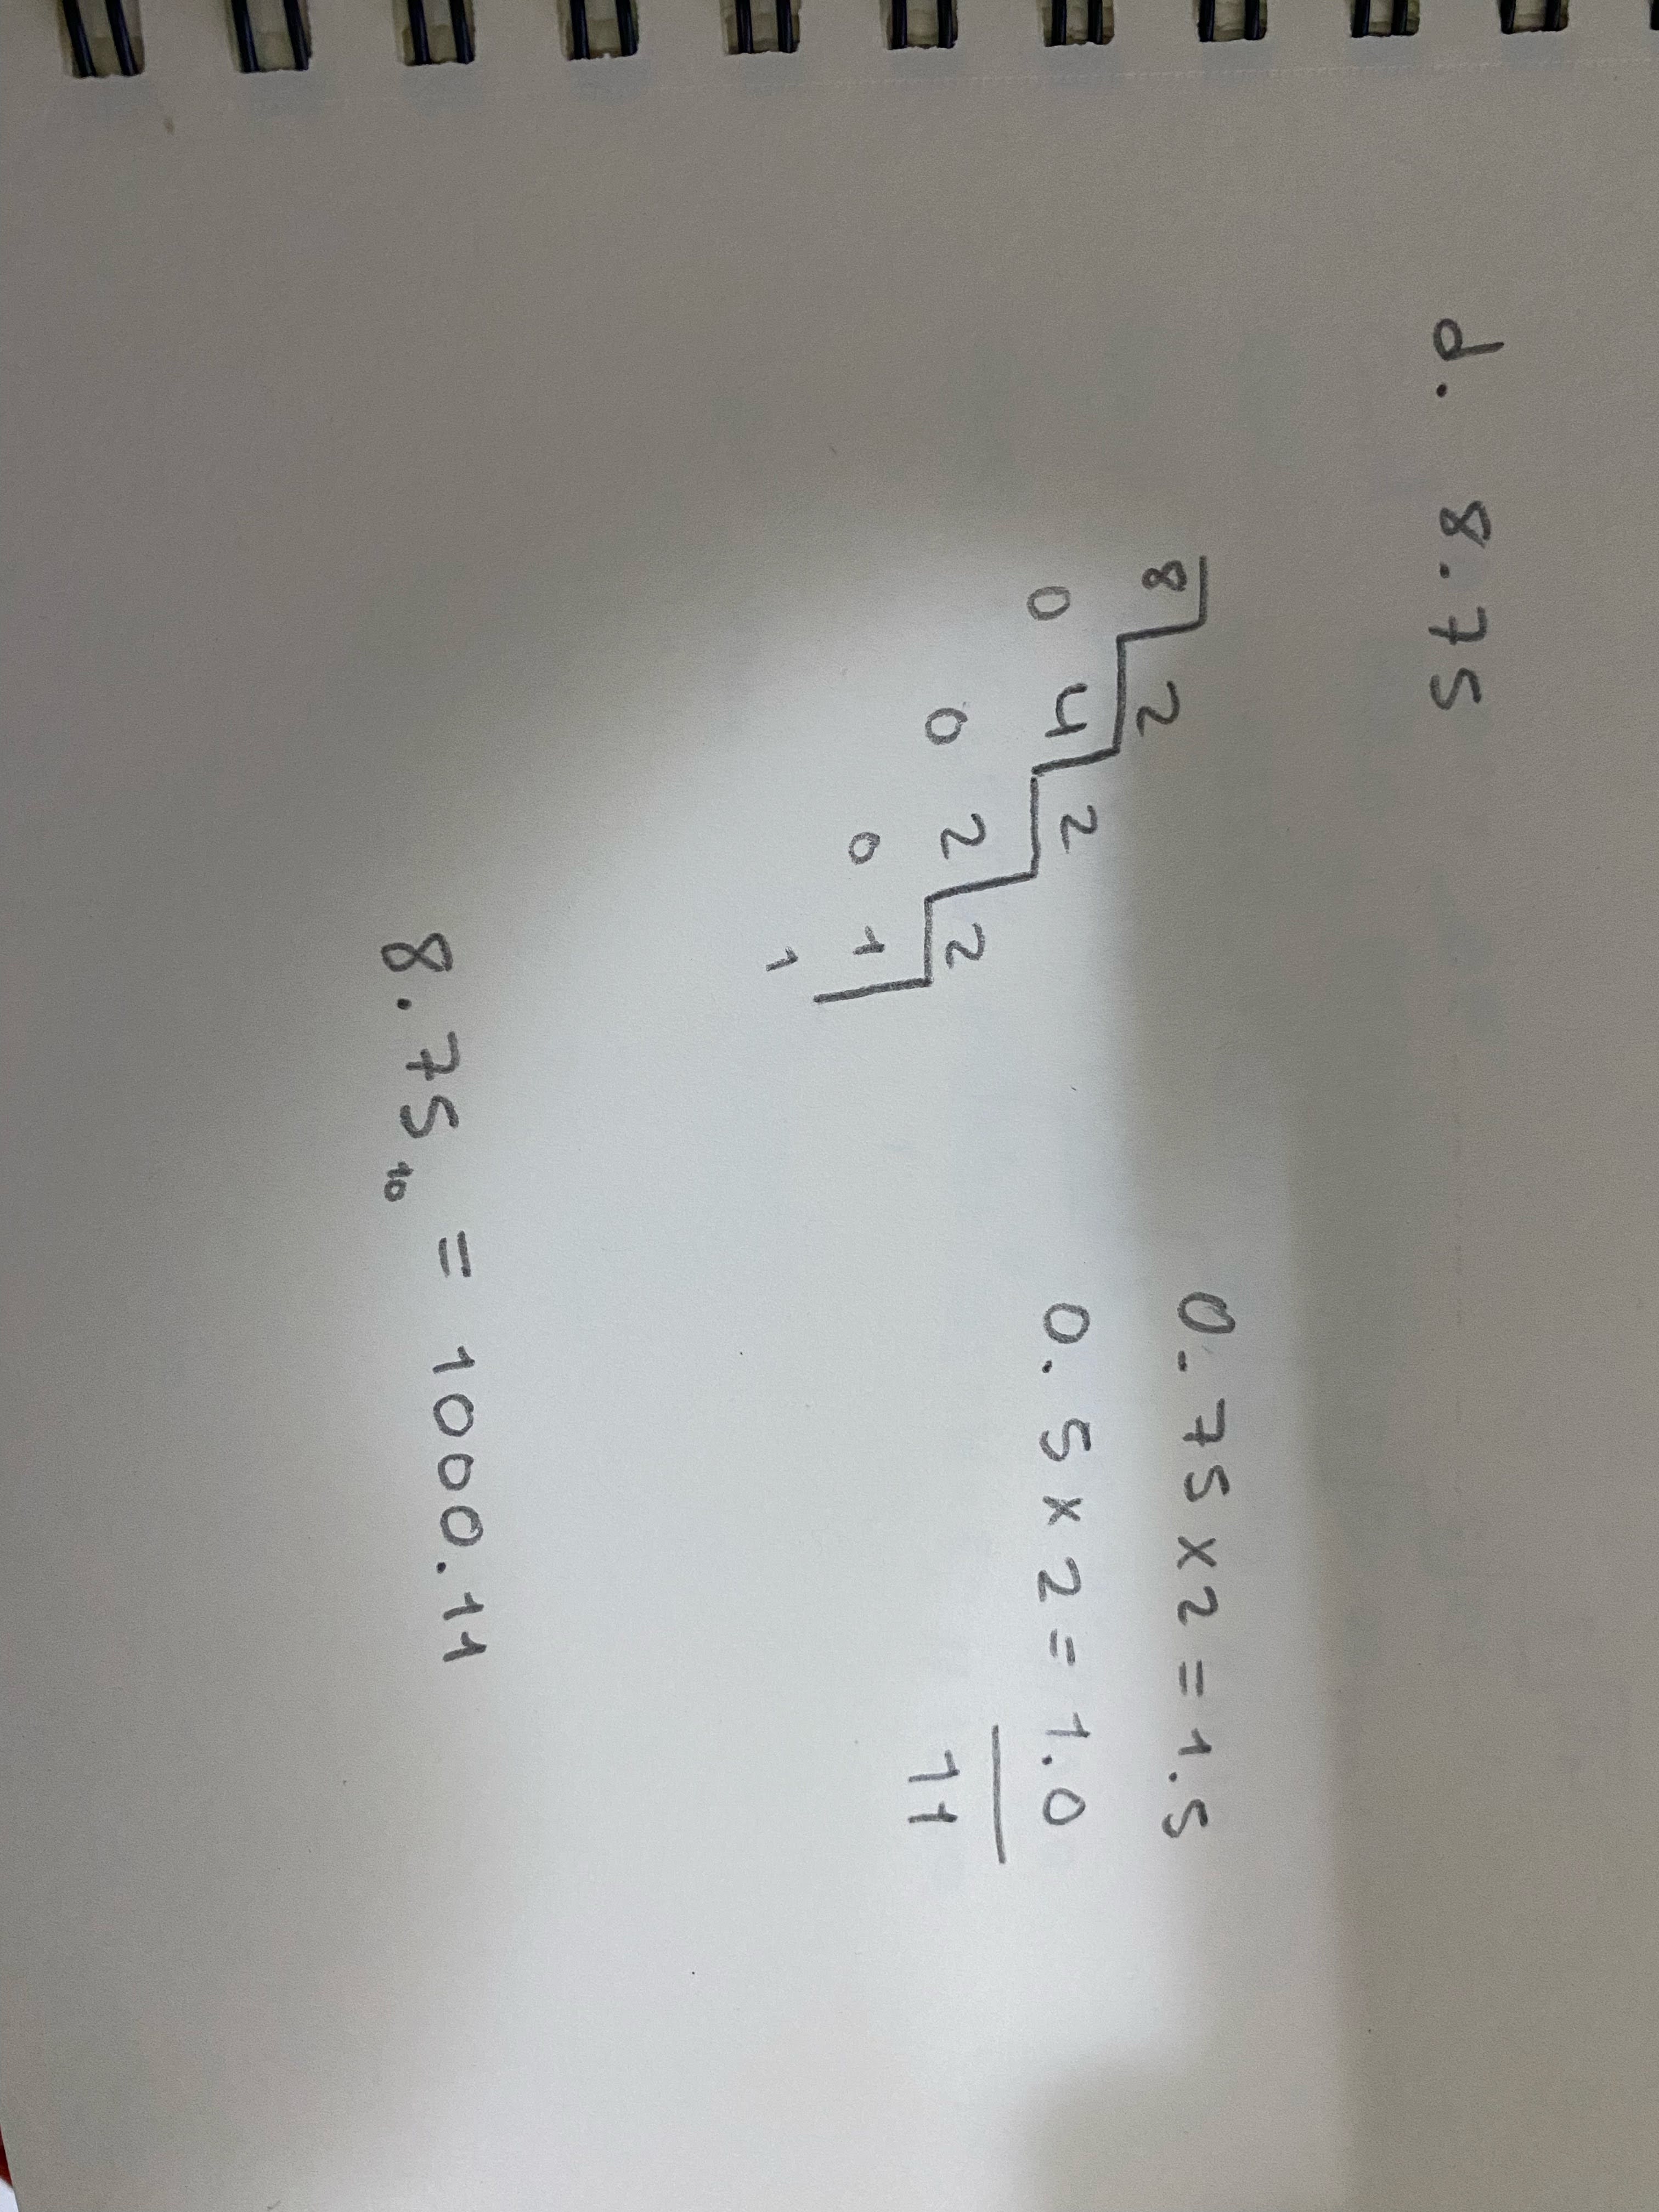 d. 8.75
8 2
0 4 2
0 2 2
0 1
1
0.75 x 2 = 1.5
0.5 x 2 = 1.0
11
8.75₁₀ = 1000.11